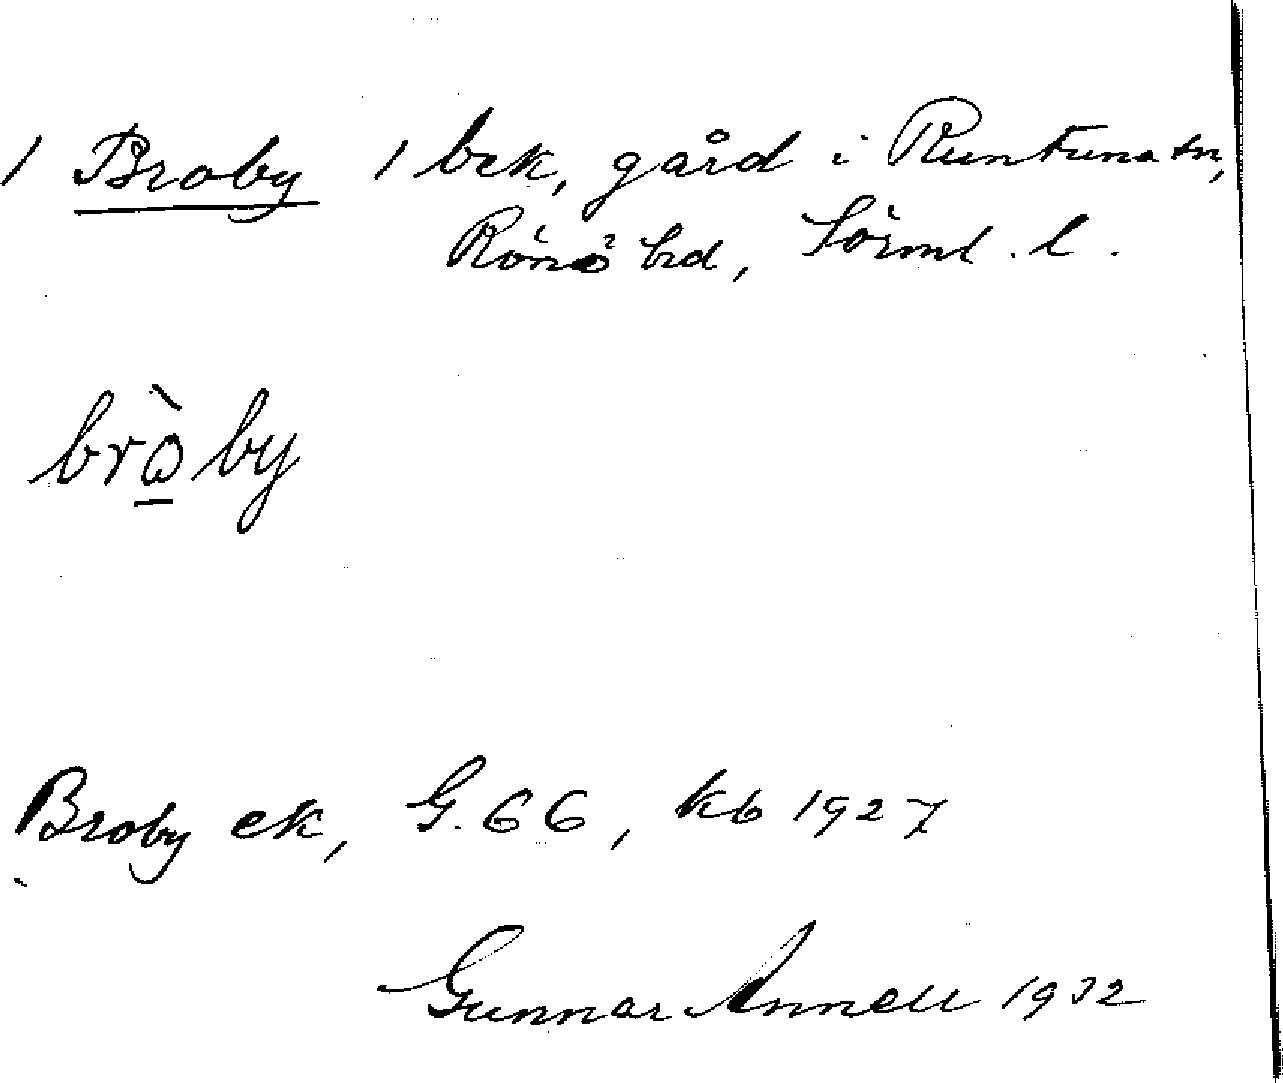 1 Broby 1 bek, gård i Runtuna sn,
Rönö hd, Sörml. l.
brò̠by
Broby ek, G. 66, kb 1927
Gunnar Annell 1932